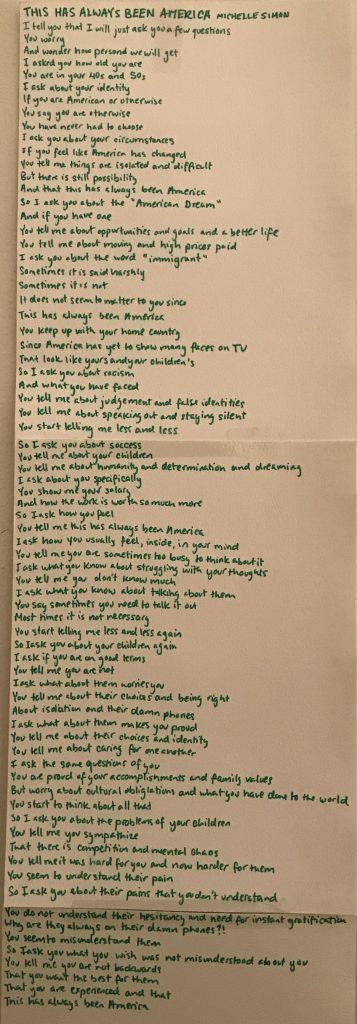 THIS HAS ALWAYS BEEN AMERICA MICHELLE SIMON
I tell you that I will just ask you a few questions
You worry
And wonder how personal we will get
I asked you how old you are
You are in your 40s and 50s
I ask about your identity
If you are American or otherwise
You say you are otherwise
You have never had to choose
I ask you about your circumstances
If you feel like America has changed
You tell me things are isolated and difficult
But there is still possibility
And that this has always been America
So I ask you about the "American Dream"
And if you have one
You tell me about opportunities and goals and a better life
You tell me about moving and high prices paid
I ask you about the word "immigrant"
Sometimes it is said harshly
Sometimes it is not
It does not seem to matter to you since
This has always been America
You keep up with your home country
Since America has yet to show many faces on TV
That look like yours and your children's
So I ask you about racism
And what you have faced
You tell me about judgement and false identities
You tell me about speaking out and staying silent
You start telling me less and less
So I ask you about success
You tell me about your children
You tell me about humanity and determination and dreaming
I ask about you specifically
You show me your salary
And how the work is worth so much more
So I ask how you feel
You tell me this has always been America
I ask how you usually feel, inside, in your mind
You tell me you are sometimes too busy to think about it
I ask what you know about struggling with your thoughts
You tell me you don't know much
I ask what you know about talking about them
You say sometimes you need to talk it out
Most times it is not necessary
You start telling me less and less again
So I ask you about your children again
I ask if you are on good terms
You tell me you are not
I ask what about them worries you
You tell me about their choices and being right
About isolation and their damn phones
I ask what about them makes you proud
You tell me about their choices and identity
You tell me about caring for one another
I ask the same questions of you
You are proud of your accomplishments and family values
But worry about cultural obligations and what you have done to the world
You start to think about all that
So I ask you about the problems of your children
You tell me you sympathize
That there is competition and mental chaos
You tell me it was hard for you and now harder for them
You seem to understand their pain
So I ask you about their pains that you don't understand
You do not understand their hesitancy and need for instant gratification
Why are they always on their damn phones?!
You seem to misunderstand them
So I ask you what you wish was not misunderstood about you
You tell me you are not backwards
That you want the best for them
That you are experienced and that
This has always been America